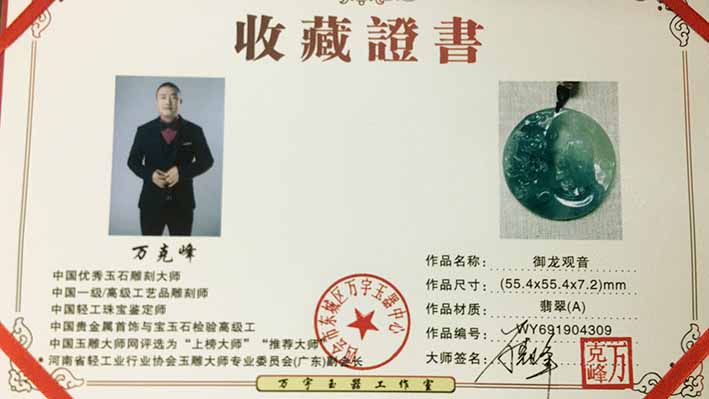 收藏證書
万克峰
中国优秀玉石雕刻大师
中国一级/高级工艺品雕刻师
中国轻工珠宝鉴定师
中国贵金属首饰与宝玉石检验高级工
中国玉雕大师网评选为“上榜大师”“推荐大师”
河南省轻工业行业协会玉雕大师专业委员会(广东)副会长
市东城区万字玉器中心
作品名称：御龙观音
作品尺寸：(55.4x55.4x7.2)mm
作品材质：翡翠(A)
作品编号：WY691904309
大师签名：万克峰
万克峰
万字玉器工作室